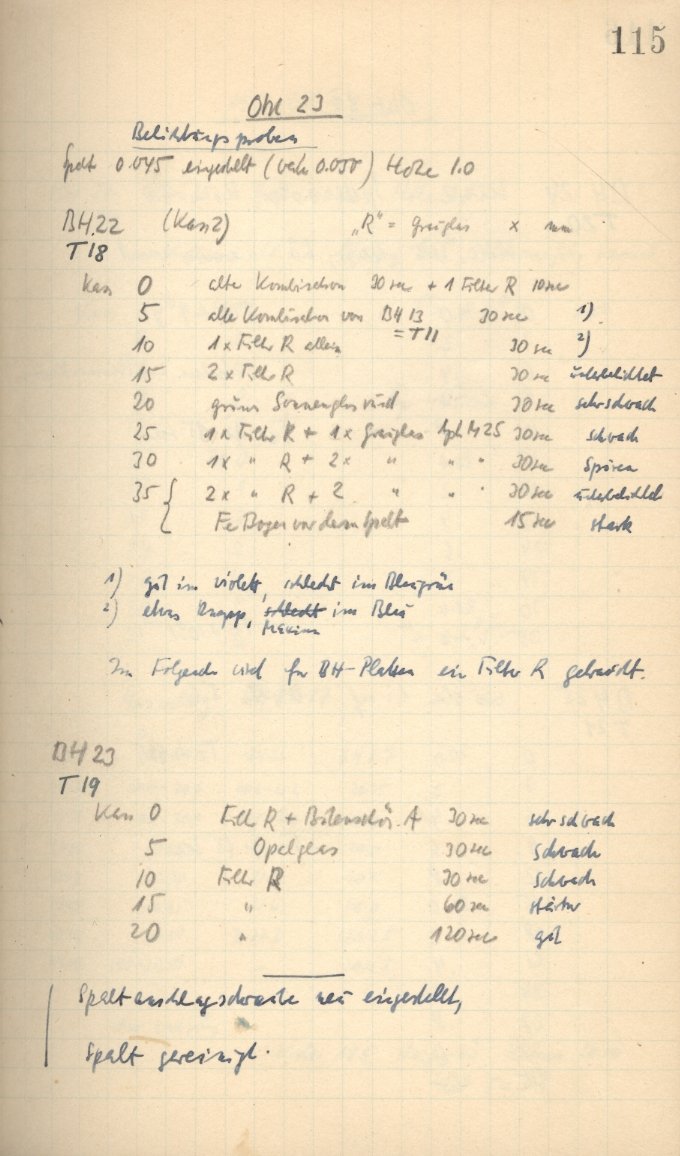 115
Okt 23
Belichtungsproben
Spalt 0.045 eingestellt ( 0.050) Höhe 1.0
BH 22 (Kas 2) „R“ = Grauglas x mm
T 18
Kas 0 alte Kombination 30 sec + 1 Filter R 10 sec
5 alte Kombination von BH 13 30 sec 1)
= T 11
10 1 x Filter R allein 30 sec 2)
15 2 x Filter R 30 sec unterbelichtet
20 grünes Sonnenglas 30 sec sehr schwach
25 1 x Filter R + 1 x Grauglas 25 30 sec schwach
30 1 x " R + 2 x " " " 30 sec Spuren
35 { 2 x " R + 2 " " " 30 sec unterbelichtet
Fe Bogen vor dem Spalt 15 sec stark
1) gut im violett, schlecht im Blaugrün
2) etwas knapp, schlecht im Blau
Maximum
Im Folgenden wird für BH-Platten ein Filter R gebraucht.
BH 23
T 19
Kas 0 Filter R + A 30 sec sehr schwach
5 Opalglas 30 sec schwach
10 Filter R 30 sec schwach
15 " 60 sec stärker
20 " 120 sec gut
Spaltanschlagschraube neu eingestellt,
Spalt gereinigt.